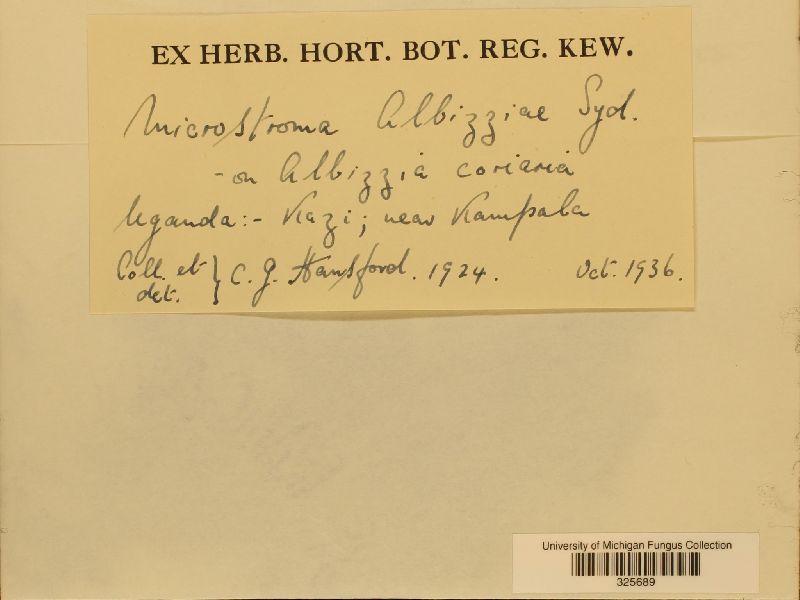 EX HERB. HORT. BOT. REG. KEW.
Microstroma Albizziae Syd.
- on Albizzia coriaria
Uganda:- Kazi; near Kampala
Coll. et det. } C. G. Hansford. 1924. Oct. 1936.
University of Michigan Fungus Collection
325689